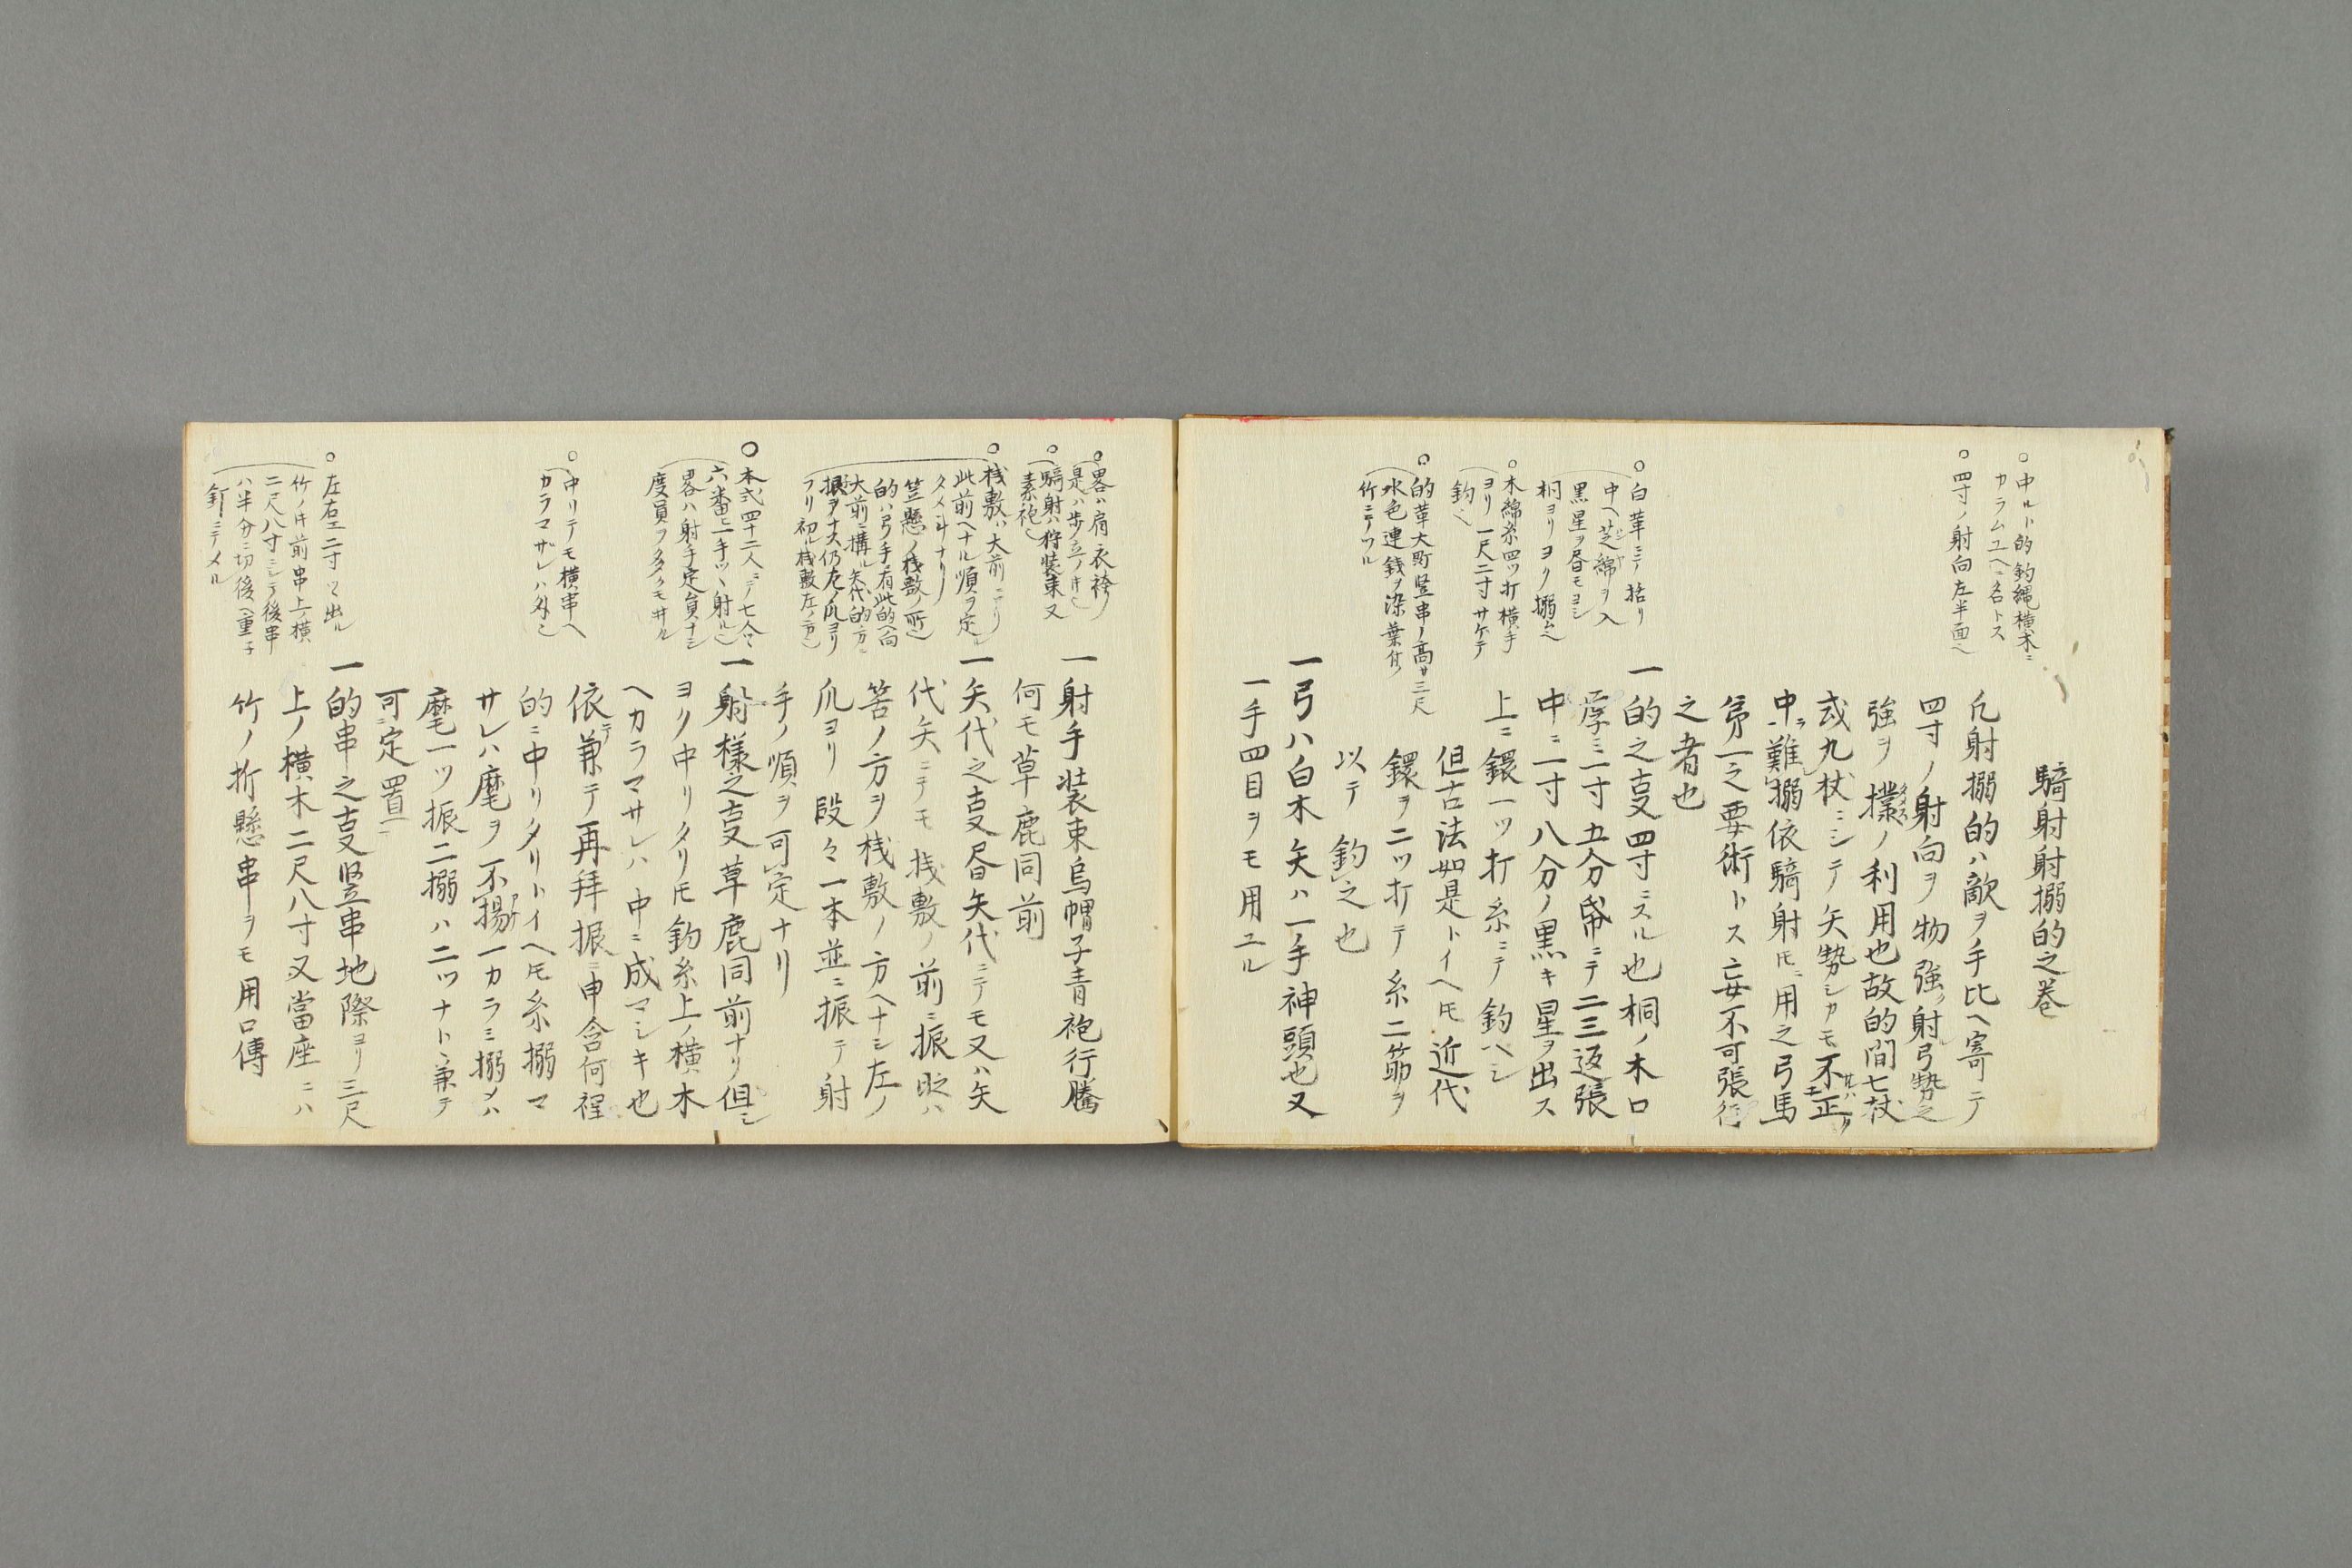 騎射射搦的之巻
凡射搦的ハ敵ヲ手比ヘ寄テ
四寸ノ射向ヲ物強射弓勢之
強ヲ撲ノ利用也故的間七杖
或九杖ニシテ矢勢シカモ不正
中難搦依騎射ニ用之弓馬
第一之要術トス妄不可張行
之者也
一的之叓四寸ニスル也桐ノ木口
厚ミ一寸五分帋ニテ二三返張
中ニ二寸八分ノ黒キ星ヲ出ス
上ニ鐶一ツ打糸ニテ釣ヘシ
但古法如是トイヘ𪜈近代
鐶ヲ二ツ打テ糸二筋ヲ
以テ釣之也
一弓ハ白木矢ハ一手神頭也又
一手四目ヲモ用ユル
○中ルト的釣縄横木ニ
カラムユヘニ名トス
○四寸ノ射向左半面
○白革ニテ括リ
中ヘ芝綿ヲ入
黒星ヲ昼モヨシ
桐ヨリヨク搦ム
○木綿糸四ツ打横手
ヨリ一尺二寸サケテ
釣
○的革大町竪串ノ高サ三尺
水色連銭ヲ染葉付
竹ニテツル
一射手装束烏帽子青袍行騰
何モ草鹿同前
一矢代之叓昼矢代ニテモ又ハ矢
代矢ニテモ桟敷ノ前ニ振
筈ノ方ヲ桟敷ノ方ヘナシ左ノ
爪ヨリ段々一本並ニ振テ射
手ノ順ヲ可定ナリ
一射様之叓草鹿同前ナリ但シ
ヨリ中リタリ𪜈釣糸上ノ横木
ヘカラマサレハ中ニ成マシキ也
依テ兼テ再拜振ニ申含何程
的ニ中リタリトイヘ𪜈糸搦マ
サレハ麾ヲ不揚一カラミ搦メハ
麾一ツ振二搦ハ二ツナト兼テ
可定置
一的串之叓竪串地際ヨリ三尺
上ノ横木二尺八寸又當座ニハ
竹ノ折懸串ヲモ用口傳
○畧ハ肩衣袴
是ハ歩立ノ𪜈
○騎射ハ狩装束又
素袍
○桟敷ハ大前ニアリ
此前ヘナル順ヲ定ル
タメ斗ナリ
笠懸ノ桟敷ノ所
的ハ弓手有此的ヘ向
大前ニ構ル矢代的ノ方ニ
振ヲナス仍左ノ爪ヨリ
フリ初ル桟敷左ノ方
○本式四十二人ニテ七
六番一手ツヽ射ル
畧ハ射手定員ナシ
度員ヲ
○中リテモ横串ヘ
カラマザレハ外
○左右エ二寸ツヽ出ル
竹ノ𪜈前串上ノ横
二尺八寸ニシテ後串
ハ半分ニ切後ヘ重子
釘ニテメル